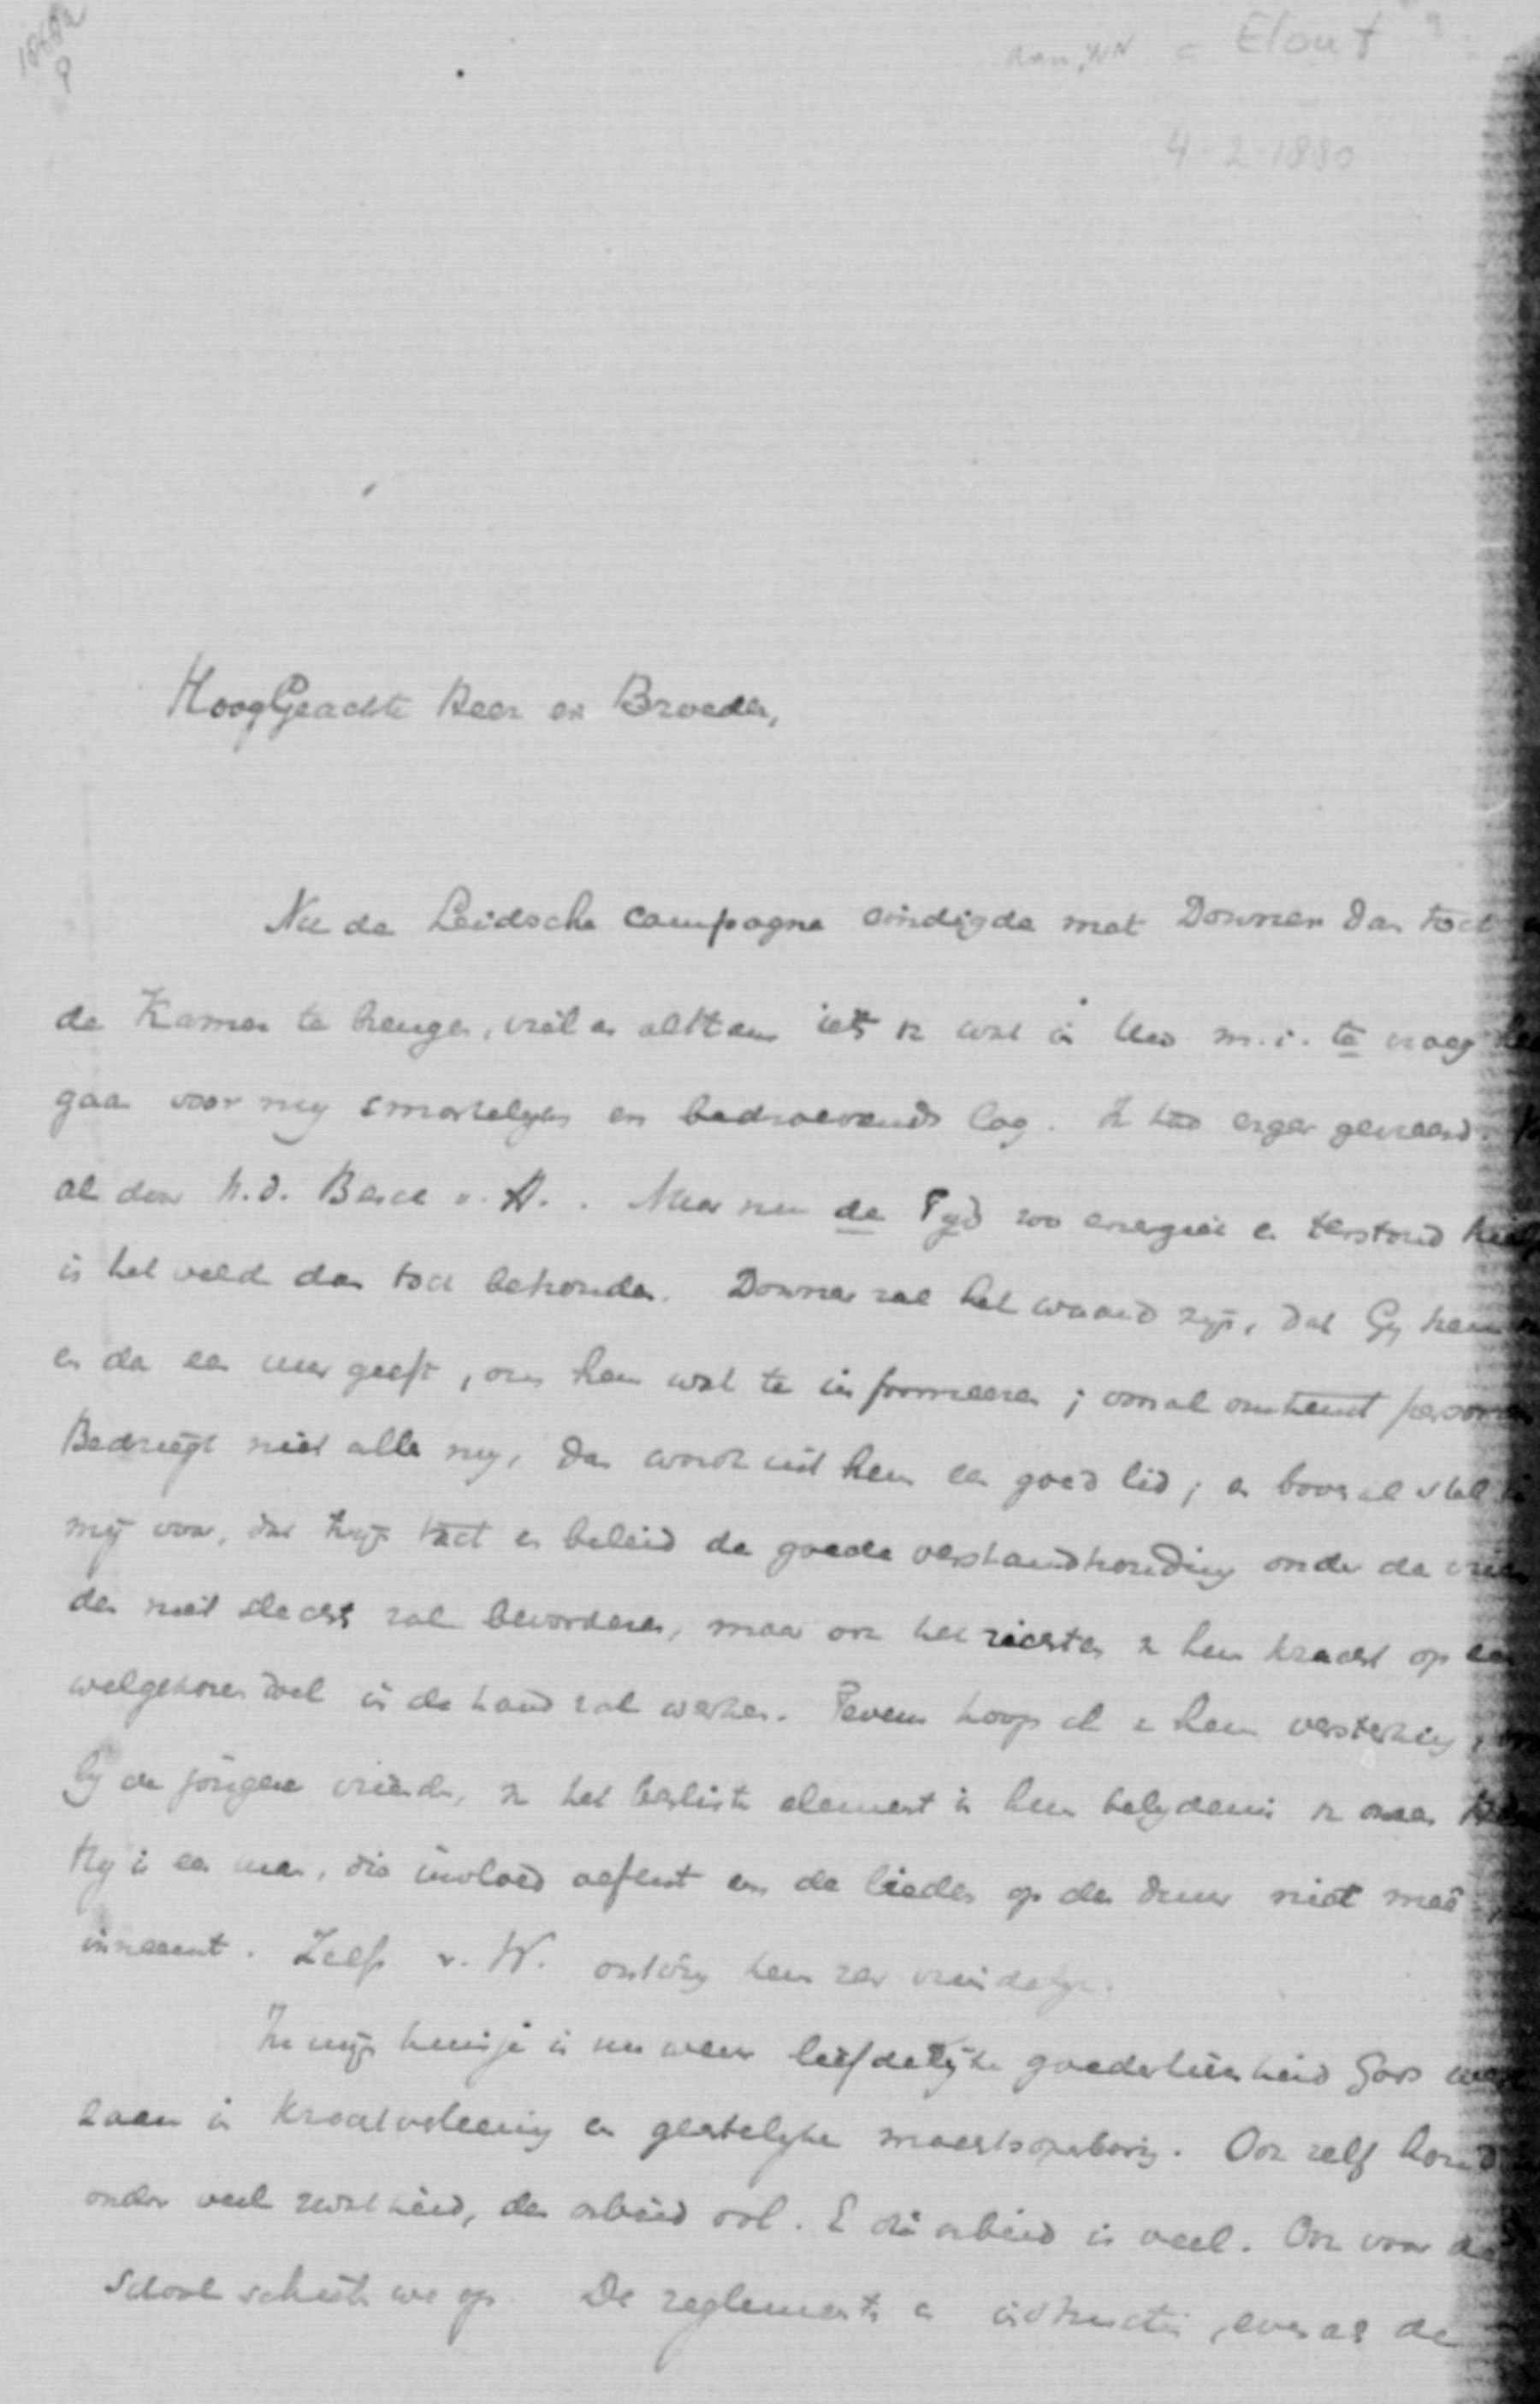 aan NN = Elout ?
4-2-1880
HoogGeachte Heer en Broeder,
Nu de Leidsche campagne eindigde met Donner dan toch
de Kamer te brengen, viel er althans iets in wat in Uw m.i. te vroeg
gaan voor mij smartelijks en bedroevends lag. Ik had erger gevreesd.
al door h.d. v. . Maar nu de Tijd zoo energiek en terstond
is het veld dan toch behouden. Donner zal het waard zijn, dat Gij hem
en dan een uur geeft, om hem wat te informeeren; vooral omtrent
Bedriegt niet alles mij, dan wordt uit hem een goed lid; en bovenal stel
mij voor, dat zijn tact en beleid de goede verstandhouding onder de
den niet slechts zal bevorderen, maar ook het richten van hun kracht op een
welgekozen doel in de hand zal werken. Tevens hoop ik in hem versterking,
bij de jongere vrienden, van het besliste element in hun belydenis en onzer
Hij is een man, die invloed oefent en de lieden op den duur niet
inneemt. Zelfs v. W. ontving hem zeer vriendelijk.
In mijn huisje is nu weer liefdelijke goedertierenheid Gods
zaam in krachtverleening en geestelijke moedsopbeuring. Ook zelf
onder veel zwakheid, den arbeid vol. En die arbeid is veel. Ook voor de
School schieten we op. De reglementen en instructiën, evenals de